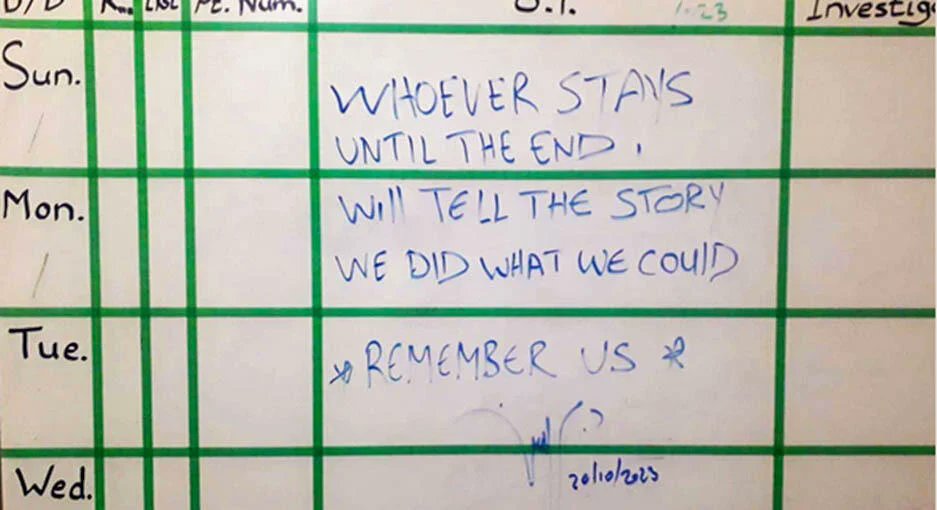 D/D Rm. PL. Num. O.T. Investig
Sun.
WHOEVER STAYS
UNTIL THE END.
Mon.
Will TELL THE STORY
WE DID WHAT WE COUlD
Tue.
*REMEMBER US *
20/10/2023
Wed.